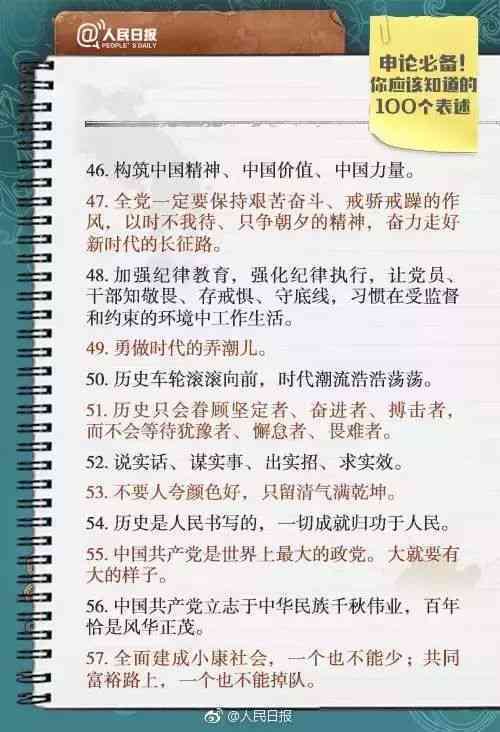 @人民日报
PEOPLE'S DAILY
申论必备!
你应该知道的
100个表述
46. 构筑中国精神、中国价值、中国力量。
47. 全党一定要保持艰苦奋斗、戒骄戒躁的作
风，以时不我待、只争朝夕的精神，奋力走好
新时代的长征路。
48. 加强纪律教育，强化纪律执行，让党员、
干部知敬畏、存戒惧、守底线，习惯在受监督
和约束的环境中工作生活。
49. 勇做时代的弄潮儿。
50. 历史车轮滚滚向前，时代潮流浩浩荡荡。
51. 历史只会眷顾坚定者、奋进者、搏击者，
而不会等待犹豫者、懈怠者、畏难者。
52. 说实话、谋实事、出实招、求实效。
53. 不要人夸颜色好，只留清气满乾坤。
54. 历史是人民书写的，一切成就归功于人民。
55. 中国共产党是世界上最大的政党。大就要有
大的样子。
56. 中国共产党立志于中华民族千秋伟业，百年
恰是风华正茂。
57. 全面建成小康社会，一个也不能少；共同
富裕路上，一个也不能掉队。
@人民日报